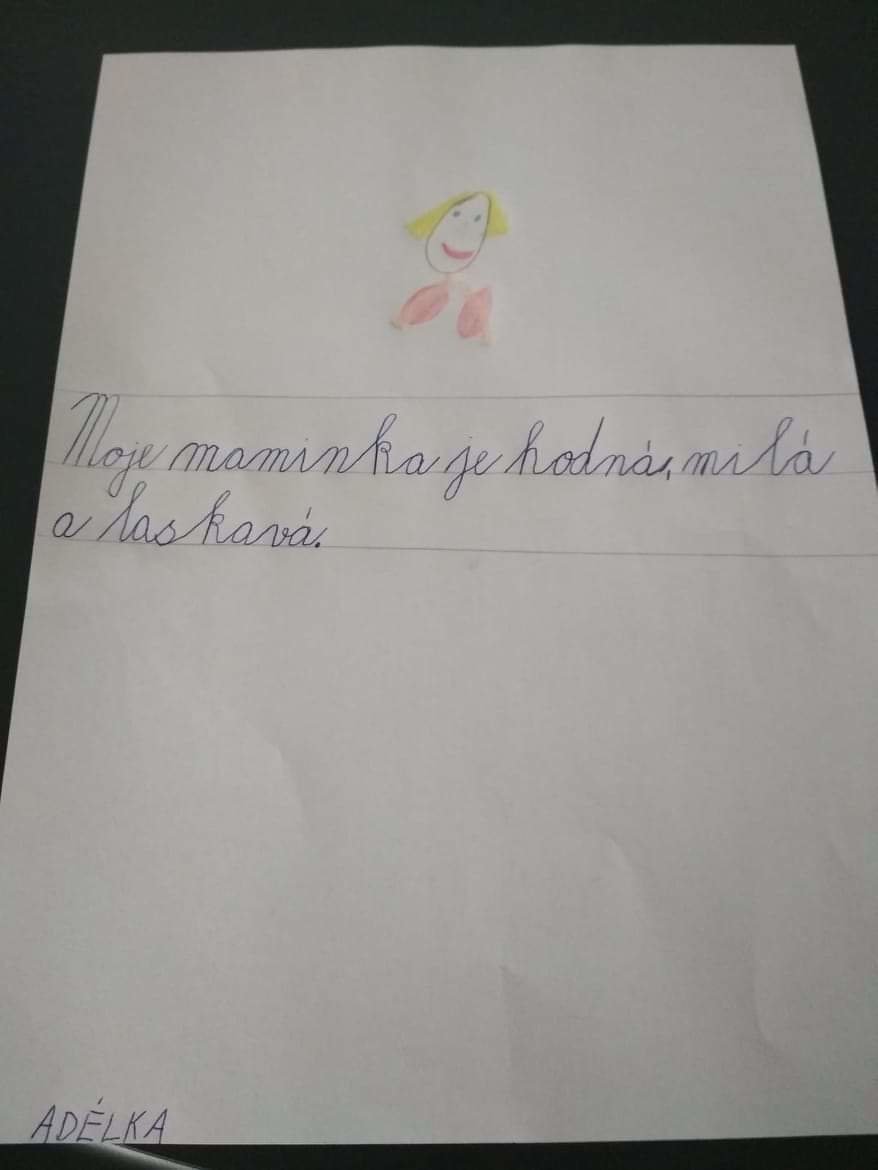 Moje maminka je hodná, milá
a laskavá.
ADÉLKA